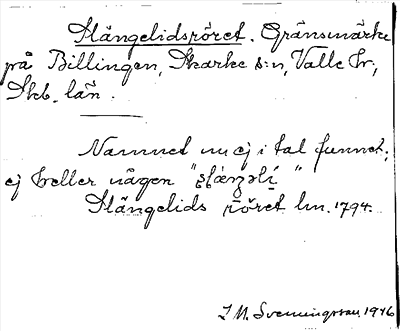 Stängelidsröret. Gränsmärke
på Billingen, Skarke s:n, Valle hr,
Skb. län.
Namnet nu ej i tal funnet;
ej heller någon "
Stängelids röret lm. 1794.
I M. Svenningsson 1946